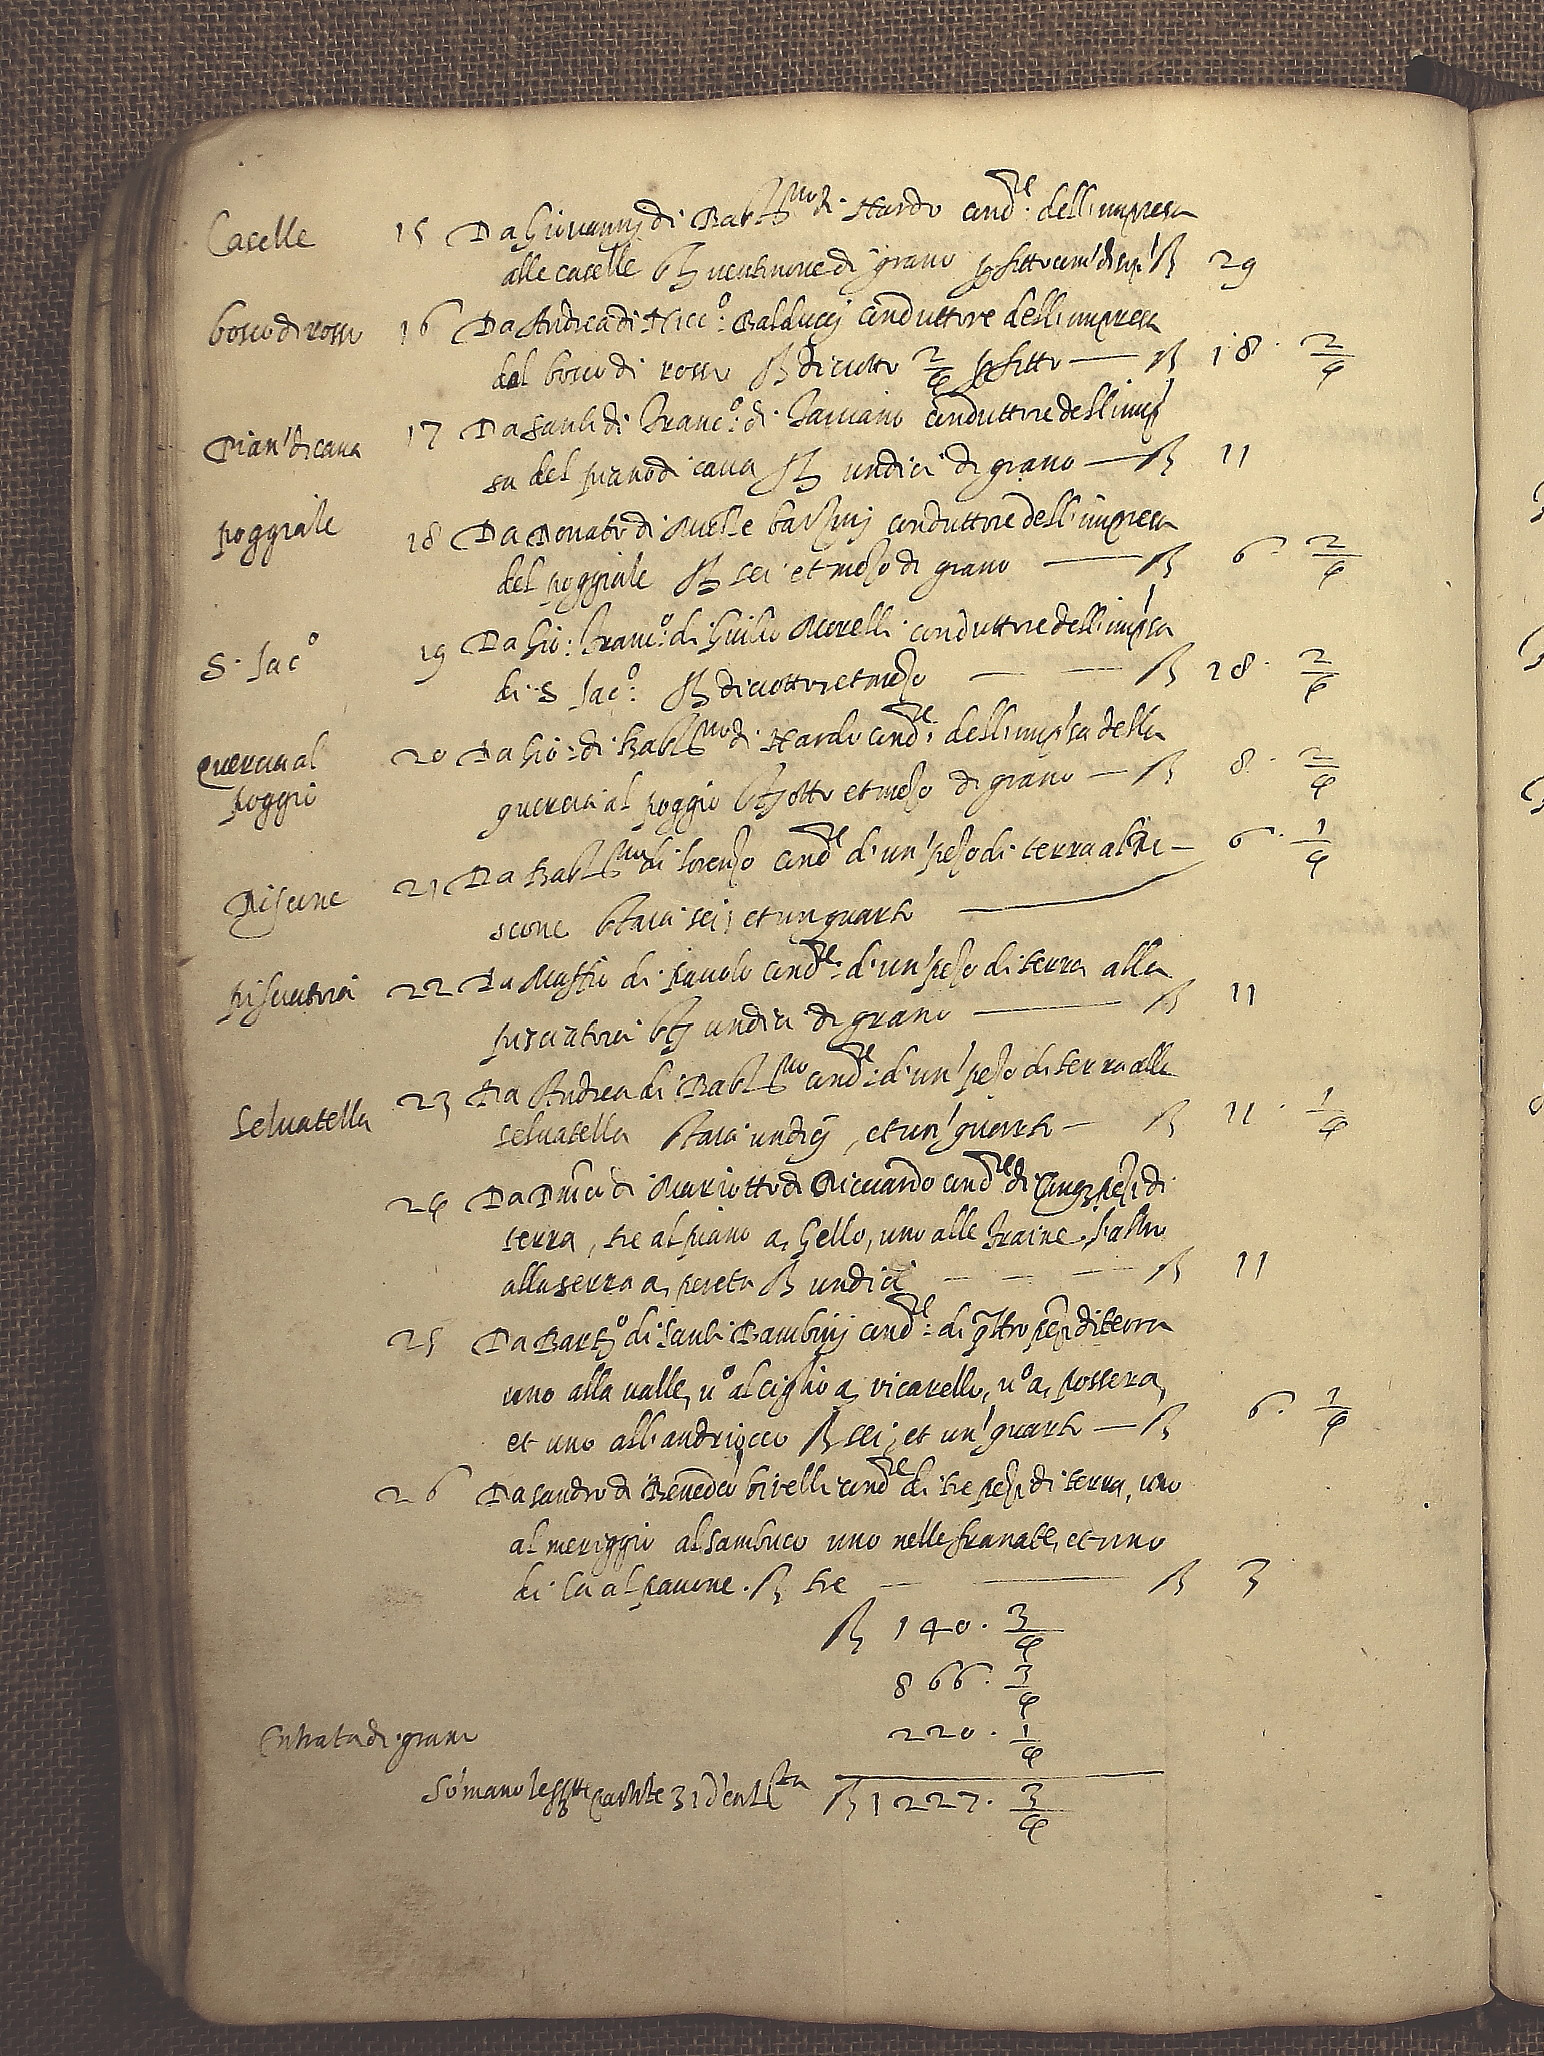 Caselle 15 Da Giovannj di Bartmo di Nardo condre: dell'impresa
alle caselle st ventinove di grano st 29
bosco di rosso 16 Da Andrea di Nicco: Balduccj conduttore dell'impresa
del bosco di rosso st diciotto 2/4 p fitto — st 18. 2/4
Pian' di cava 17 Da Santi di Franco: di conduttore dell'imp
sa del piano di cava st undici di grano — st 11
poggiale 18 Da Donato di conduttore dell'impresa
del poggiale st sei et mezo di grano — st 6. 2/4
S. Jaco 19 Da Gio: Franco: di Giulio Morelli conduttore dell'imp'sa
di S Jaco: st diciotto et mezo — st 18. 2/4
quercia al 20 Da Gio: di Bartmo di Nardo condre: dell'imp'sa della
poggio quercia al poggio st otto et mezo di grano — st 8. 2/4
21 Da Bartmo di Lorenzo condre d'un' pezo di terra al Ri— 6. 1/4
Riscone scone staia sei, et un quarto —
pisciatoia 22 Da Maffio di Pavolo condre: d'un' pezo di terra alla
pisciatoia st undici di grano — st 11
23 Da Andrea di Bartmo condre: d'un' pezo di terra alla
Selvatella selvatella staia undicj, et un' quarto — st 11. 1/4
24 Da Dmco di Mariotto di Ricciardo condre di cinq pezi di
terra, tre al piano a, Gello, uno alle fraine, l'altro
alla serra a, pereta st undici — st 11
25 Da Barto di Santi Bambinj condre: di qttro pezi di terra
uno alla valle, uo al ciglio a, vicarello, uo a, possera,
et uno all'andriocco st sei, et un' quarto — st 6. 1/4
26 Da Sandro di Benedo birelli condre di tre pezi di terra, uno
al meriggio al sambuco uno nelle franate, et uno
di la al pavone. st tre — st 3
st 140. 3/4
866. 3/4
220. 1/4
Entrata di grano
Sommano le 3 partite d'entta st 1227. 3/4